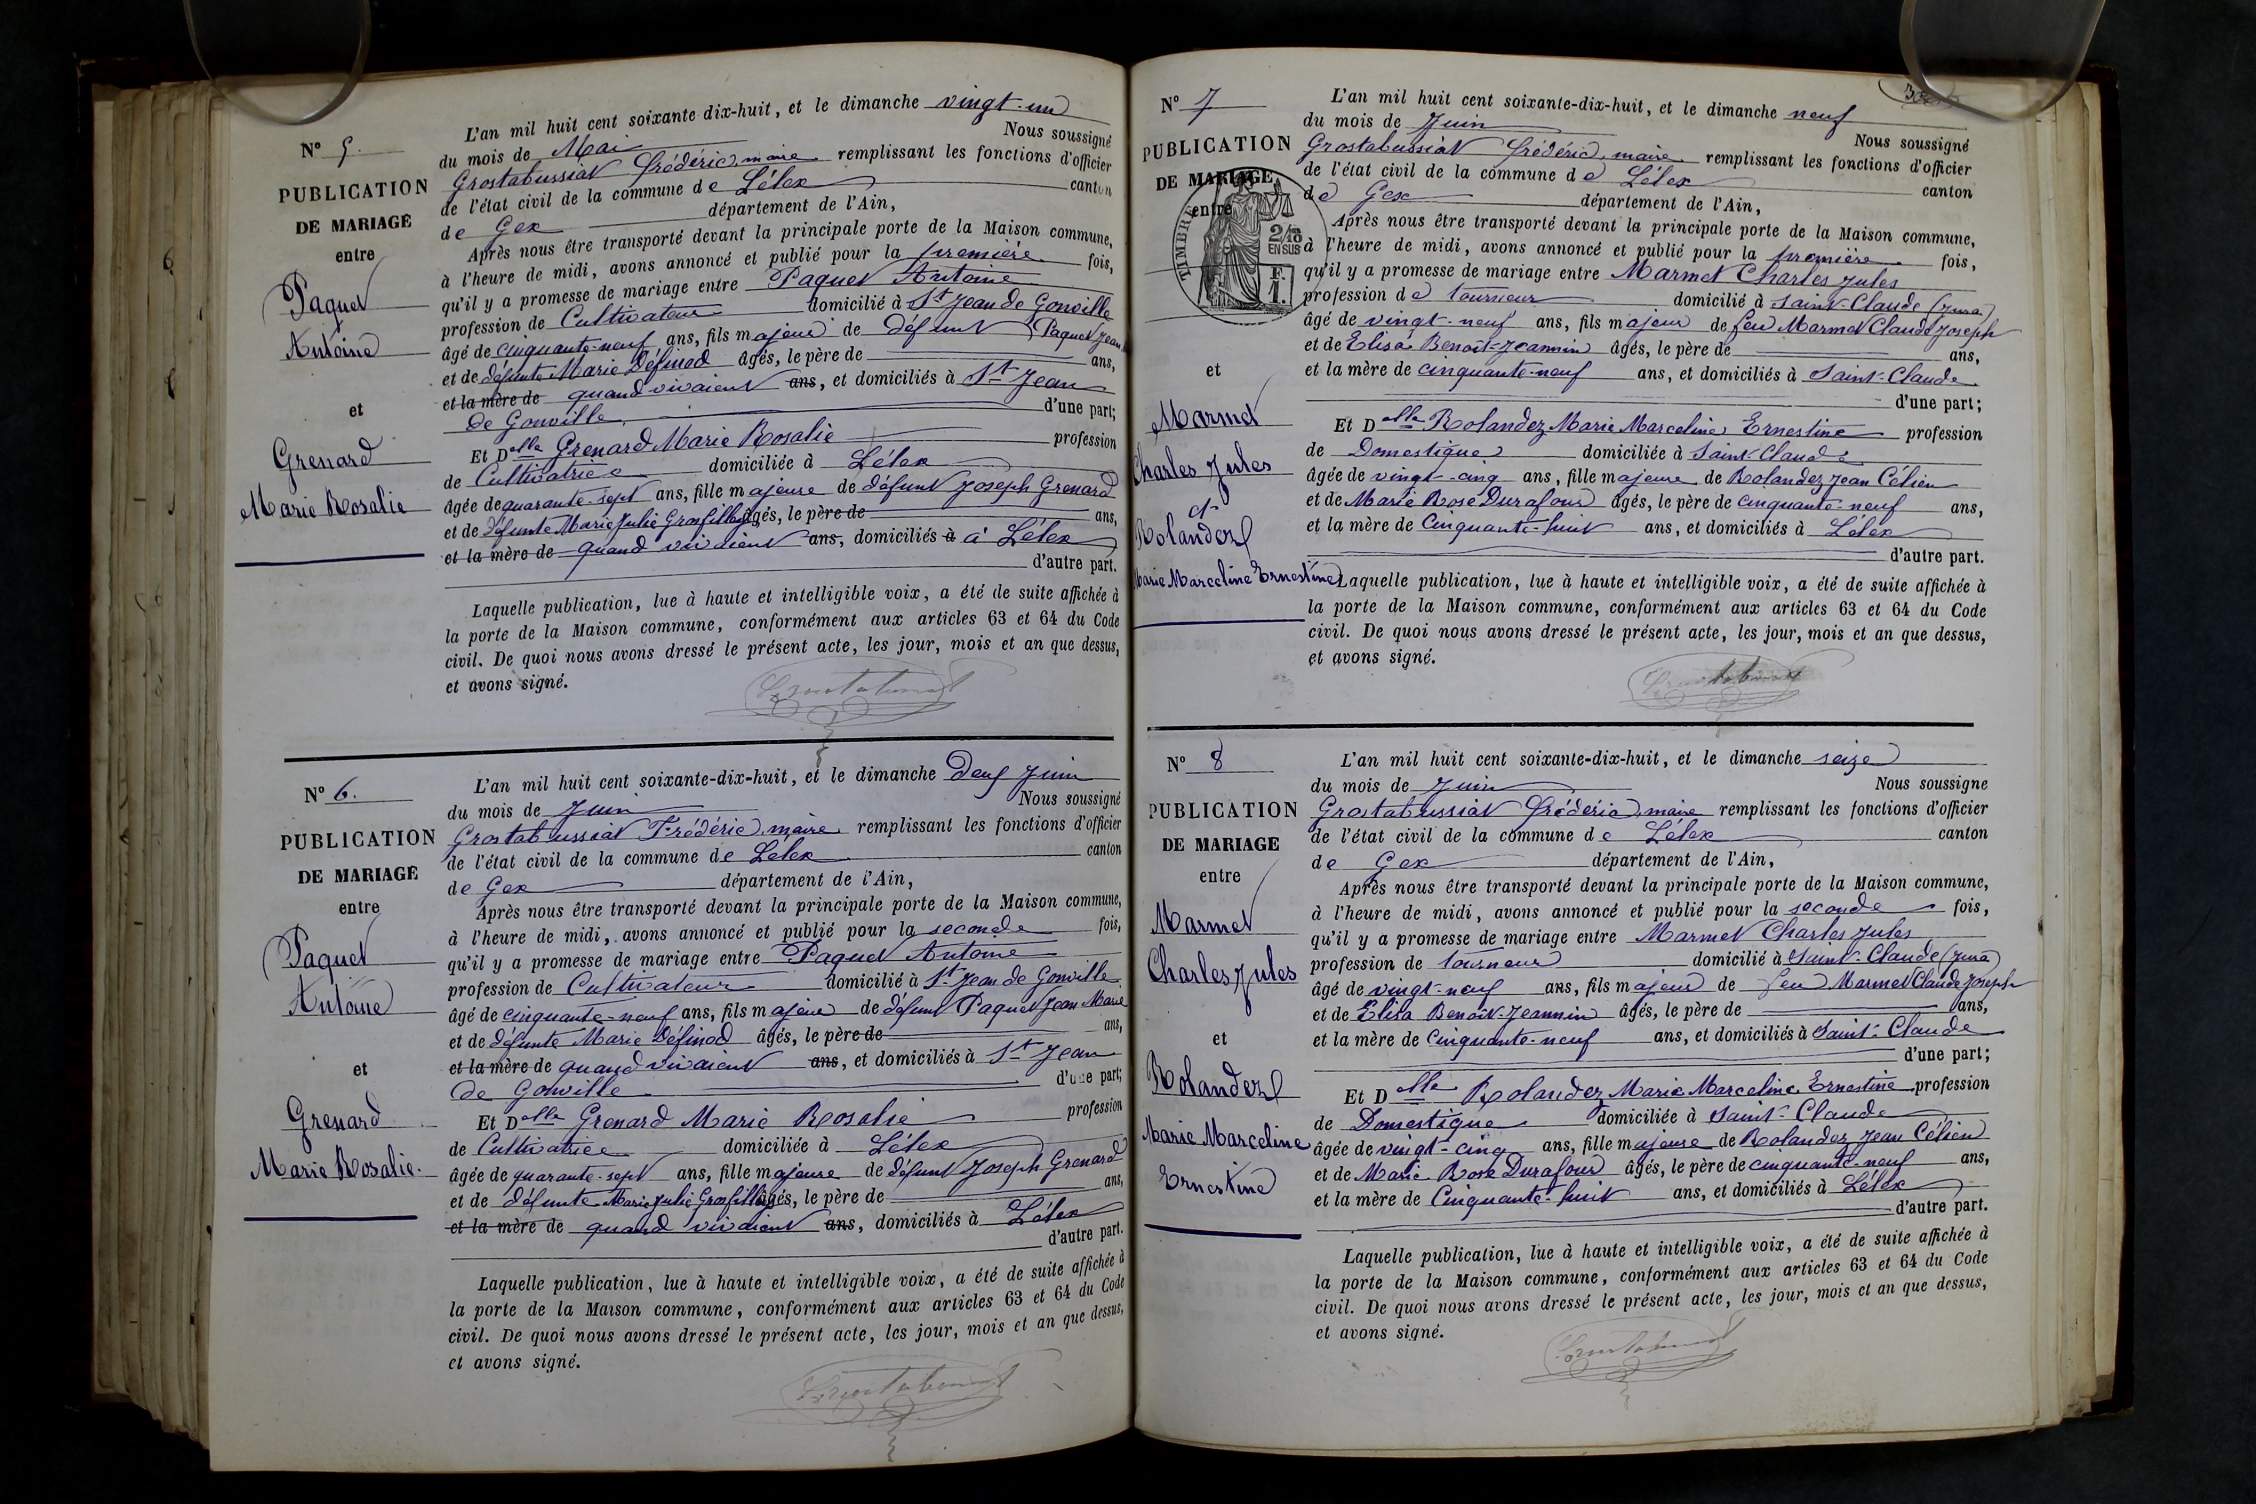 N° 5.
PUBLICATION
DE MARIAGE
entre
Paquet
Antoine
et
Grenard
Marie Rosalie
L'an mil huit cent soixante dix-huit, et le dimanche vingt-un
du mois de Mai Nous soussigné
Grostabussiat Frédéric, maire remplissant les fonctions d'officier
de l'état civil de la commune de Lélex canton
de Gex département de l'Ain,
Après nous être transporté devant la principale porte de la Maison commune,
à l'heure de midi, avons annoncé et publié pour la première fois,
qu'il y a promesse de mariage entre Paquet Antoine
profession de Cultivateur domicilié à St Jean de Gonville
âgé de cinquante-neuf ans, fils majeur de défunt Paquet Jean
et de défunte Marie Définod âgés, le père de ans,
et la mère de quand vivaient ans, et domiciliés à St Jean
de Gonville. d'une part;
Et Delle Grenard Marie Rosalie profession
de Cultivatrice domiciliée à Lélex
âgée de quarante-sept ans, fille majeure de défunt Joseph Grenard
et de défunte Marie Julie Grosfilley âgés, le père de ans,
et la mère de quand vivaient ans, domiciliés à à Lélex
d'autre part.
Laquelle publication, lue à haute et intelligible voix, a été de suite affichée à
la porte de la Maison commune, conformément aux articles 63 et 64 du Code
civil. De quoi nous avons dressé le présent acte, les jour, mois et an que dessus,
et avons signé.
Grostabussiat
N° 6.
PUBLICATION
DE MARIAGE
entre
Paquet
Antoine
et
Grenard
Marie Rosalie.
L'an mil huit cent soixante-dix-huit, et le dimanche Deux Juin
du mois de Juin Nous soussigné
Grostabussiat Frédéric, maire remplissant les fonctions d'officier
de l'état civil de la commune de Lélex canton
de Gex département de l'Ain,
Après nous être transporté devant la principale porte de la Maison commune,
à l'heure de midi, avons annoncé et publié pour la seconde fois,
qu'il y a promesse de mariage entre Paquet Antoine
profession de Cultivateur domicilié à St Jean de Gonville
âgé de cinquante-neuf ans, fils majeur de défunt Paquet Jean Marie
et de défunte Marie Définod âgés, le père de ans,
et la mère de quand vivaient ans, et domiciliés à St Jean
de Gonville d'une part;
Et Delle Grenard Marie Rosalie profession
de Cultivatrice domiciliée à Lélex
âgée de quarante-sept ans, fille majeure de défunt Joseph Grenard
et de défunte Marie Julie Grosfilley âgés, le père de ans,
et la mère de quand vivaient ans, domiciliés à Lélex
d'autre part.
Laquelle publication, lue à haute et intelligible voix, a été de suite affichée à
la porte de la Maison commune, conformément aux articles 63 et 64 du Code
civil. De quoi nous avons dressé le présent acte, les jour, mois et an que dessus,
et avons signé.
Grostabussiat
N° 7
PUBLICATION
DE MARIAGE
entre
TIMBRE
2/10
EN SUS
F.
1.
et
Marmet
Charles Jules
et
Rolandez
Marie Marceline Ernestine
L'an mil huit cent soixante-dix-huit, et le dimanche neuf
du mois de Juin Nous soussigné
Grostabussiat Frédéric, maire remplissant les fonctions d'officier
de l'état civil de la commune de Lélex canton
de Gex département de l'Ain,
Après nous être transporté devant la principale porte de la Maison commune,
à l'heure de midi, avons annoncé et publié pour la première fois,
qu'il y a promesse de mariage entre Marmet Charles Jules
profession de tourneur domicilié à Saint-Claude (Jura)
âgé de vingt-neuf ans, fils majeur de feu Marmet Claude Joseph
et de Elisa Benoît-Jeannin âgés, le père de ans,
et la mère de cinquante-neuf ans, et domiciliés à Saint-Claude
d'une part;
Et Delle Rolandez Marie Marceline Ernestine profession
de Domestique domiciliée à Saint-Claude
âgée de vingt-cinq ans, fille majeure de Rolandez Jean Célien
et de Marie Rose Durafour âgés, le père de cinquante-neuf ans,
et la mère de Cinquante-huit ans, et domiciliés à Lélex
d'autre part.
Laquelle publication, lue à haute et intelligible voix, a été de suite affichée à
la porte de la Maison commune, conformément aux articles 63 et 64 du Code
civil. De quoi nous avons dressé le présent acte, les jour, mois et an que dessus,
et avons signé.
Grostabussiat
N° 8
PUBLICATION
DE MARIAGE
entre
Marmet
Charles Jules
et
Rolandez
Marie Marceline
Ernestine
L'an mil huit cent soixante-dix-huit, et le dimanche seize
du mois de Juin Nous soussigne
Grostabussiat Frédéric, maire remplissant les fonctions d'officier
de l'état civil de la commune de Lélex canton
de Gex département de l'Ain,
Après nous être transporté devant la principale porte de la Maison commune,
à l'heure de midi, avons annoncé et publié pour la seconde fois,
qu'il y a promesse de mariage entre Marmet Charles Jules
profession de tourneur domicilié à Saint-Claude (Jura)
âgé de vingt-neuf ans, fils majeur de feu Marmet Claude Joseph
et de Elisa Benoît-Jeannin âgés, le père de ans,
et la mère de cinquante-neuf ans, et domiciliés à Saint-Claude
d'une part;
Et Delle Rolandez Marie Marceline Ernestine profession
de Domestique domiciliée à Saint-Claude
âgée de vingt-cinq ans, fille majeure de Rolandez Jean Célien
et de Marie Rose Durafour âgés, le père de cinquante-neuf ans,
et la mère de Cinquante-huit ans, et domiciliés à Lélex
d'autre part.
Laquelle publication, lue à haute et intelligible voix, a été de suite affichée à
la porte de la Maison commune, conformément aux articles 63 et 64 du Code
civil. De quoi nous avons dressé le présent acte, les jour, mois et an que dessus,
et avons signé.
Grostabussiat